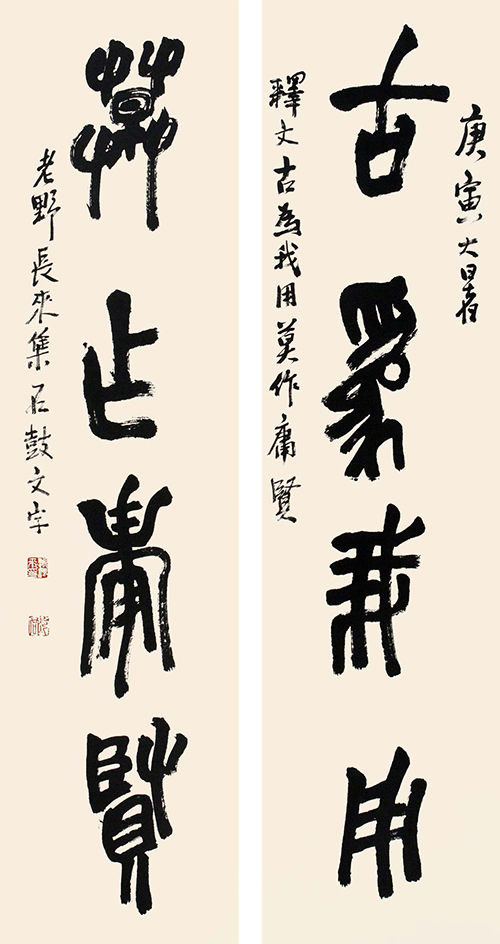 庚寅大暑
古為我用
釋文古為我用莫作庸賢
莫作庸賢
老野長來集石鼓文字